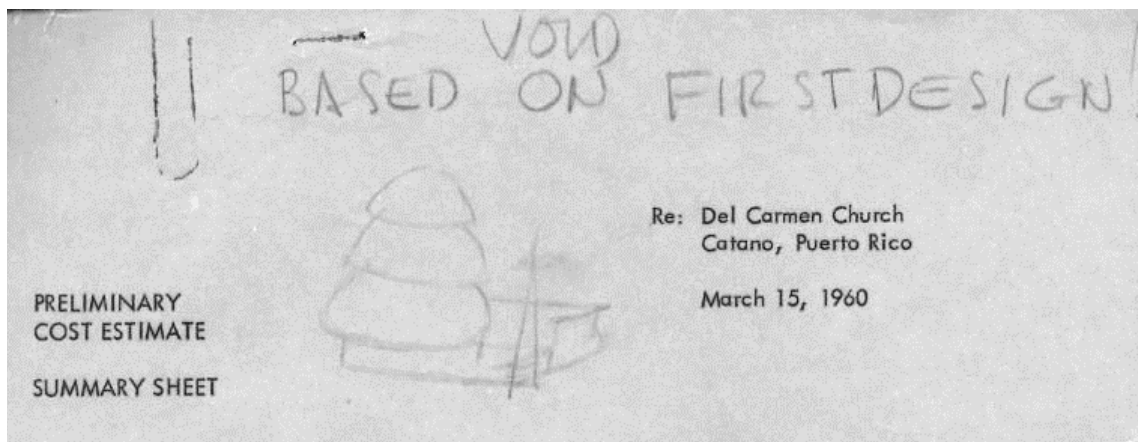 VOID
BASED ON FIRST DESIGN!
Re: Del Carmen Church
Catano, Puerto Rico
March 15, 1960
PRELIMINARY
COST ESTIMATE
SUMMARY SHEET